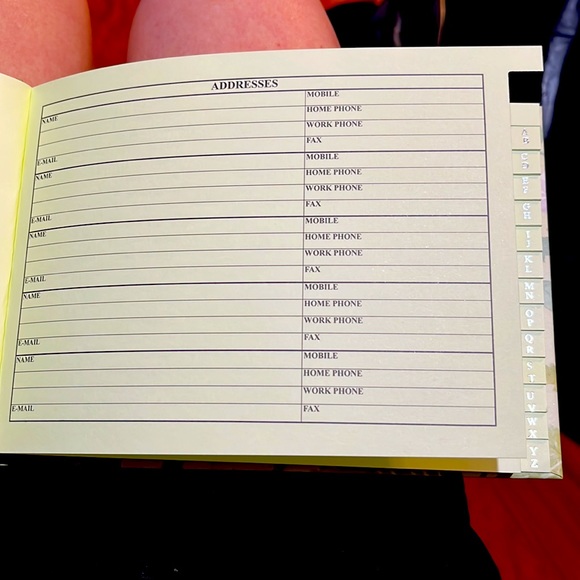 ADDRESSES
NAME
MOBILE
HOME PHONE
WORK PHONE
E-MAIL
FAX
NAME
MOBILE
HOME PHONE
WORK PHONE
E-MAIL
FAX
NAME
MOBILE
HOME PHONE
WORK PHONE
E-MAIL
FAX
NAME
MOBILE
HOME PHONE
WORK PHONE
E-MAIL
FAX
NAME
MOBILE
HOME PHONE
WORK PHONE
E-MAIL
FAX
A
B
C
D
E
F
G
H
I
J
K
L
M
N
O
P
Q
R
S
T
U
V
W
X
Y
Z